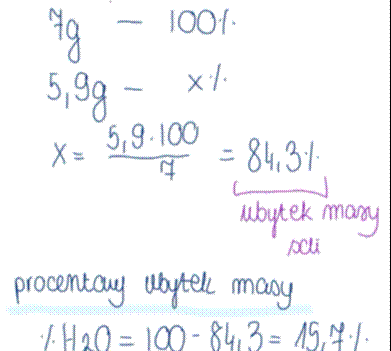 7g – 100%
5,9g – x%
x = 5,9·100 / 7 = 84,3%
ubytek masy
soli
procentowy ubytek masy
% H2O = 100 - 84,3 = 15,7%